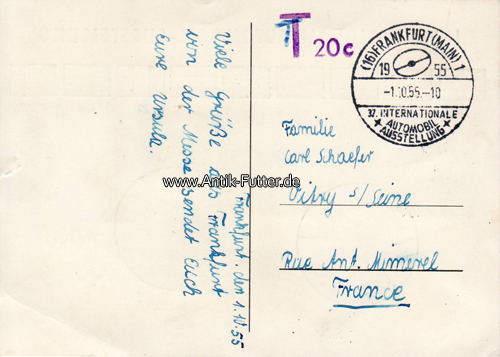 Frankfurt, den 1.10.55
Viele Grüße aus Frankfurt
von der Messe sendet Euch
Eure Ursula.
T 20c
(16) FRANKFURT (MAIN) 1
19 55
-1.10.55.-10
37. INTERNATIONALE
AUTOMOBIL
AUSSTELLUNG
Familie
Carl Schaefer
Vitry s/Seine
Rue Ant. Mimerel
France
www.Antik-Futter.de